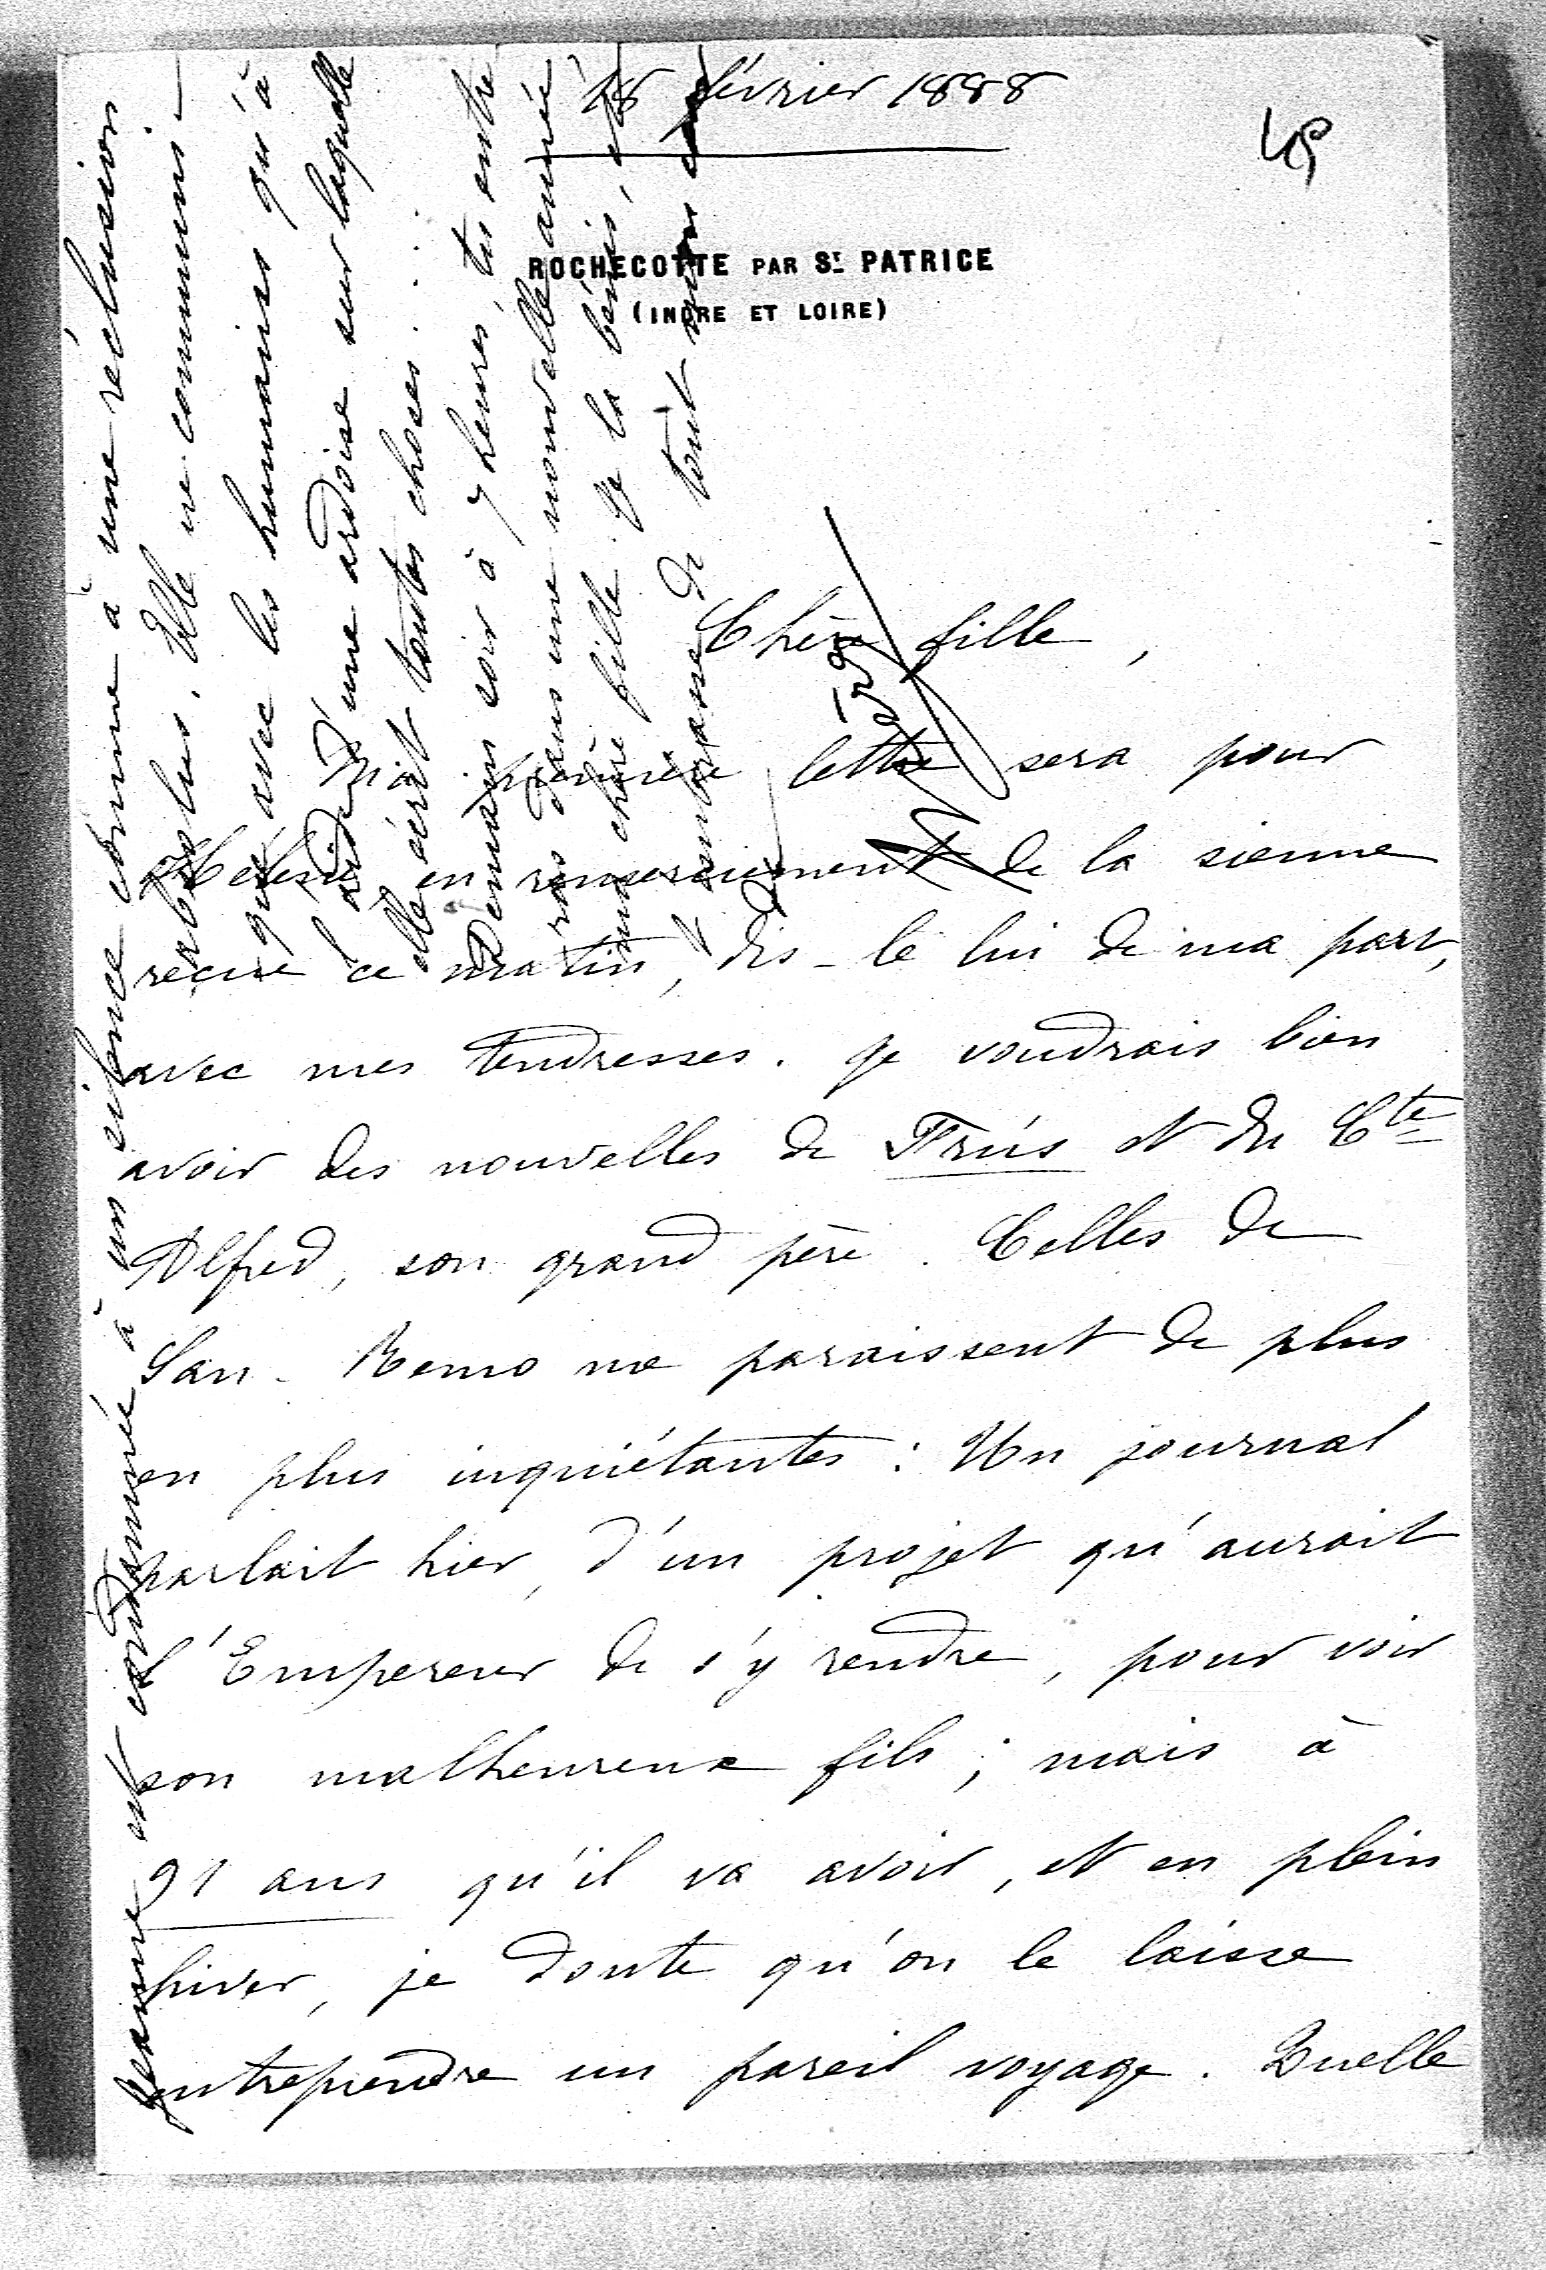 18 février 1888
45
ROCHECOTTE PAR ST. PATRICE
(INDRE ET LOIRE)
Chère fille,
Ma première lettre sera pour
Hélène en remerciement de la sienne
recue ce matin, dis-le lui de ma part,
avec mes tendresses. Je voudrais bien
avoir des nouvelles de et du Cte
Alfred, son grand père. Celles de
San-Remo me paraissent de plus
en plus inquiétantes : Un journal
parlait hier, d'un projet qu'aurait
l'Empereur de s'y rendre, pour voir
son malheureux fils ; mais à
91 ans qu'il va avoir, et en plein
hiver, je doute qu'on le laisse
entreprendre un pareil voyage. Quelle
Jeanne est condamnée à un silence comme à une réclusion
absolus. Elle ne communi-
que avec les humains qu'à
l'aide d'une ardoise sur laquelle
elle écrit toutes choses....
Demain soir à 7 heures, tu entre
ras dans une nouvelle année
ma chère fille. Je la bénis, et
t'embrasse de tout mon cœur